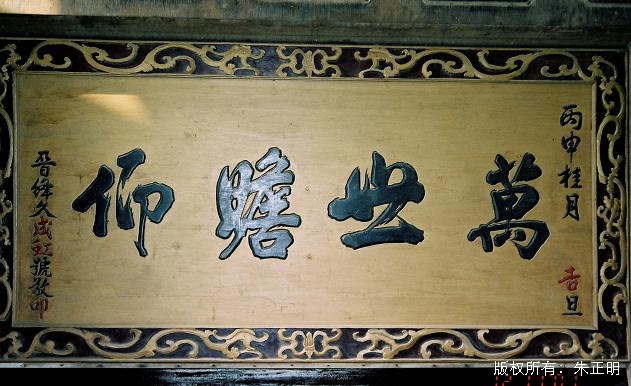 丙申桂月吉旦
萬世瞻仰
晉久成號敬叩
版权所有：朱正明